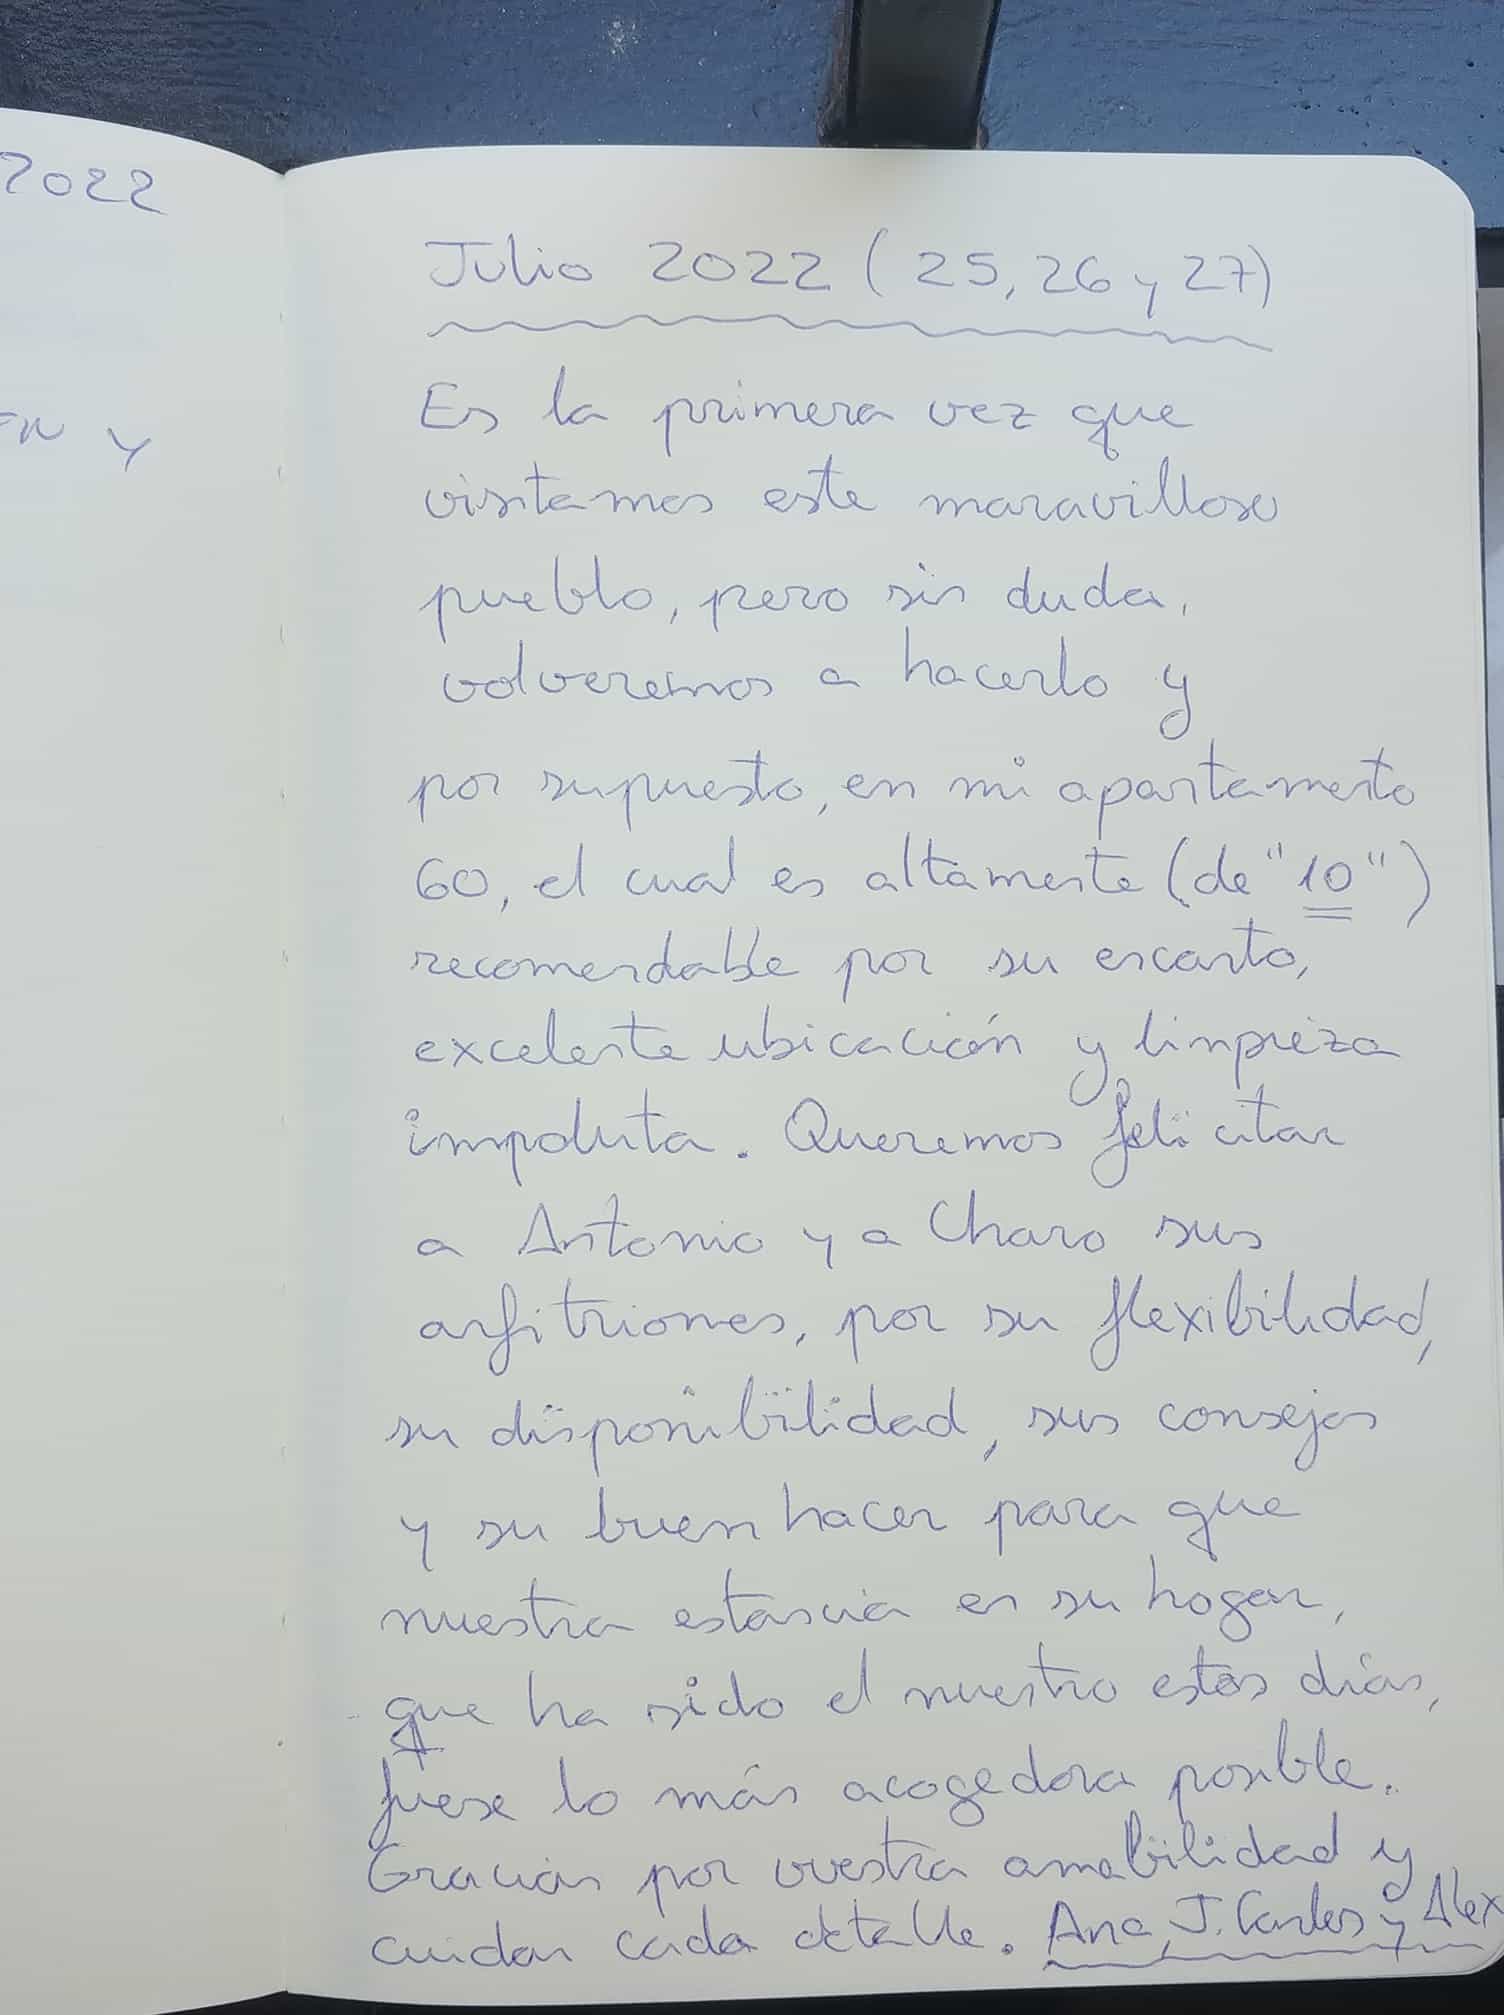 2022
y
Julio 2022 (25, 26 y 27)
Es la primera vez que
visitamos este maravilloso
pueblo, pero sin duda,
volveremos a hacerlo y
por supuesto, en mi apartamento
60, el cual es altamente (de "10")
recomendable por su encanto,
excelente ubicación y limpieza
impoluta. Queremos felicitar
a Antonio y a Charo sus
anfitriones, por su flexibilidad,
su disponibilidad, sus consejos
y su buen hacer para que
nuestra estancia en su hogar,
que ha sido el nuestro estos días,
fuese lo más acogedora posible.
Gracias por vuestra amabilidad y
cuidar cada detalle. Ana, J. Carlos y Alex